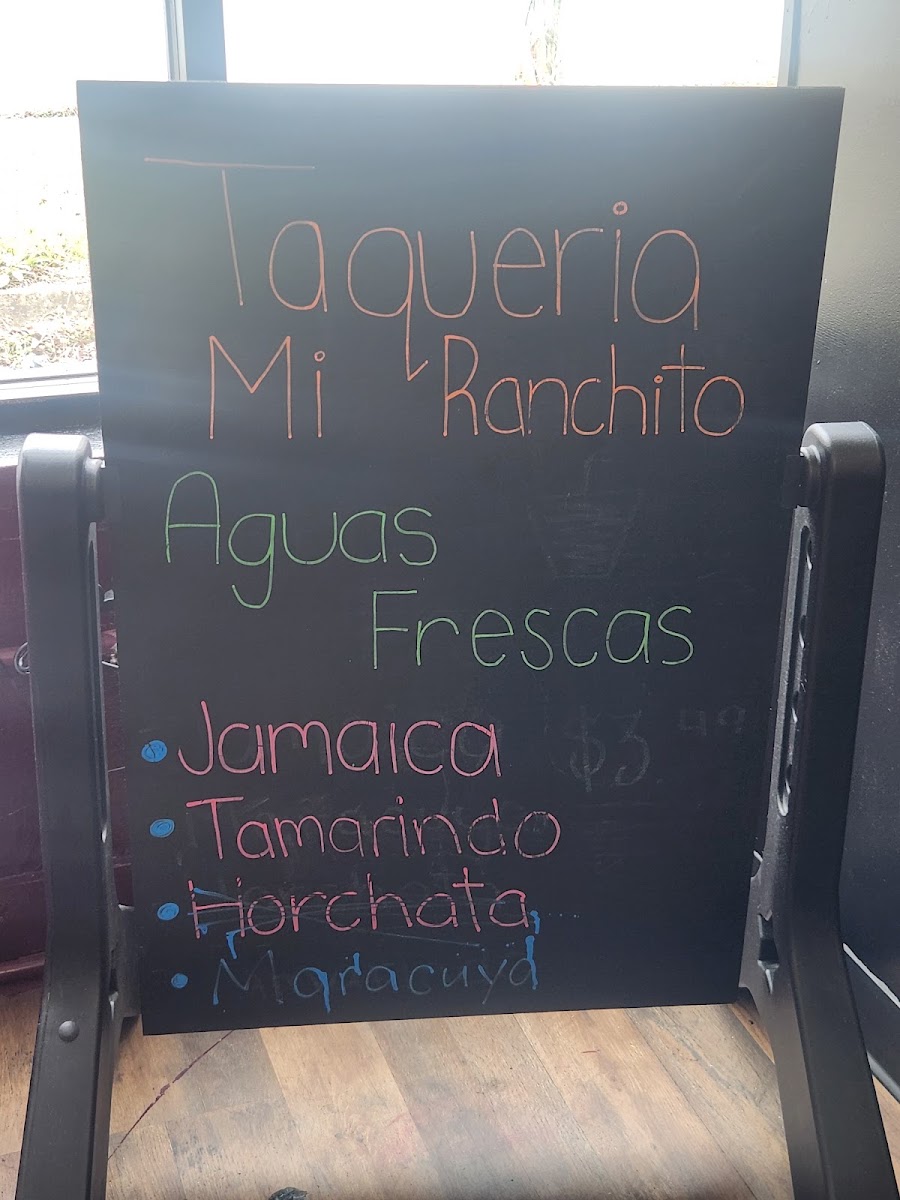 Taqueria
Mi Ranchito
Aguas
Frescas
• Jamaica $3.99
• Tamarindo
• Horchata
• Maracuya